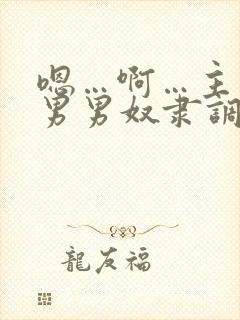 嗯…啊…主
男男奴隶調
龍友福